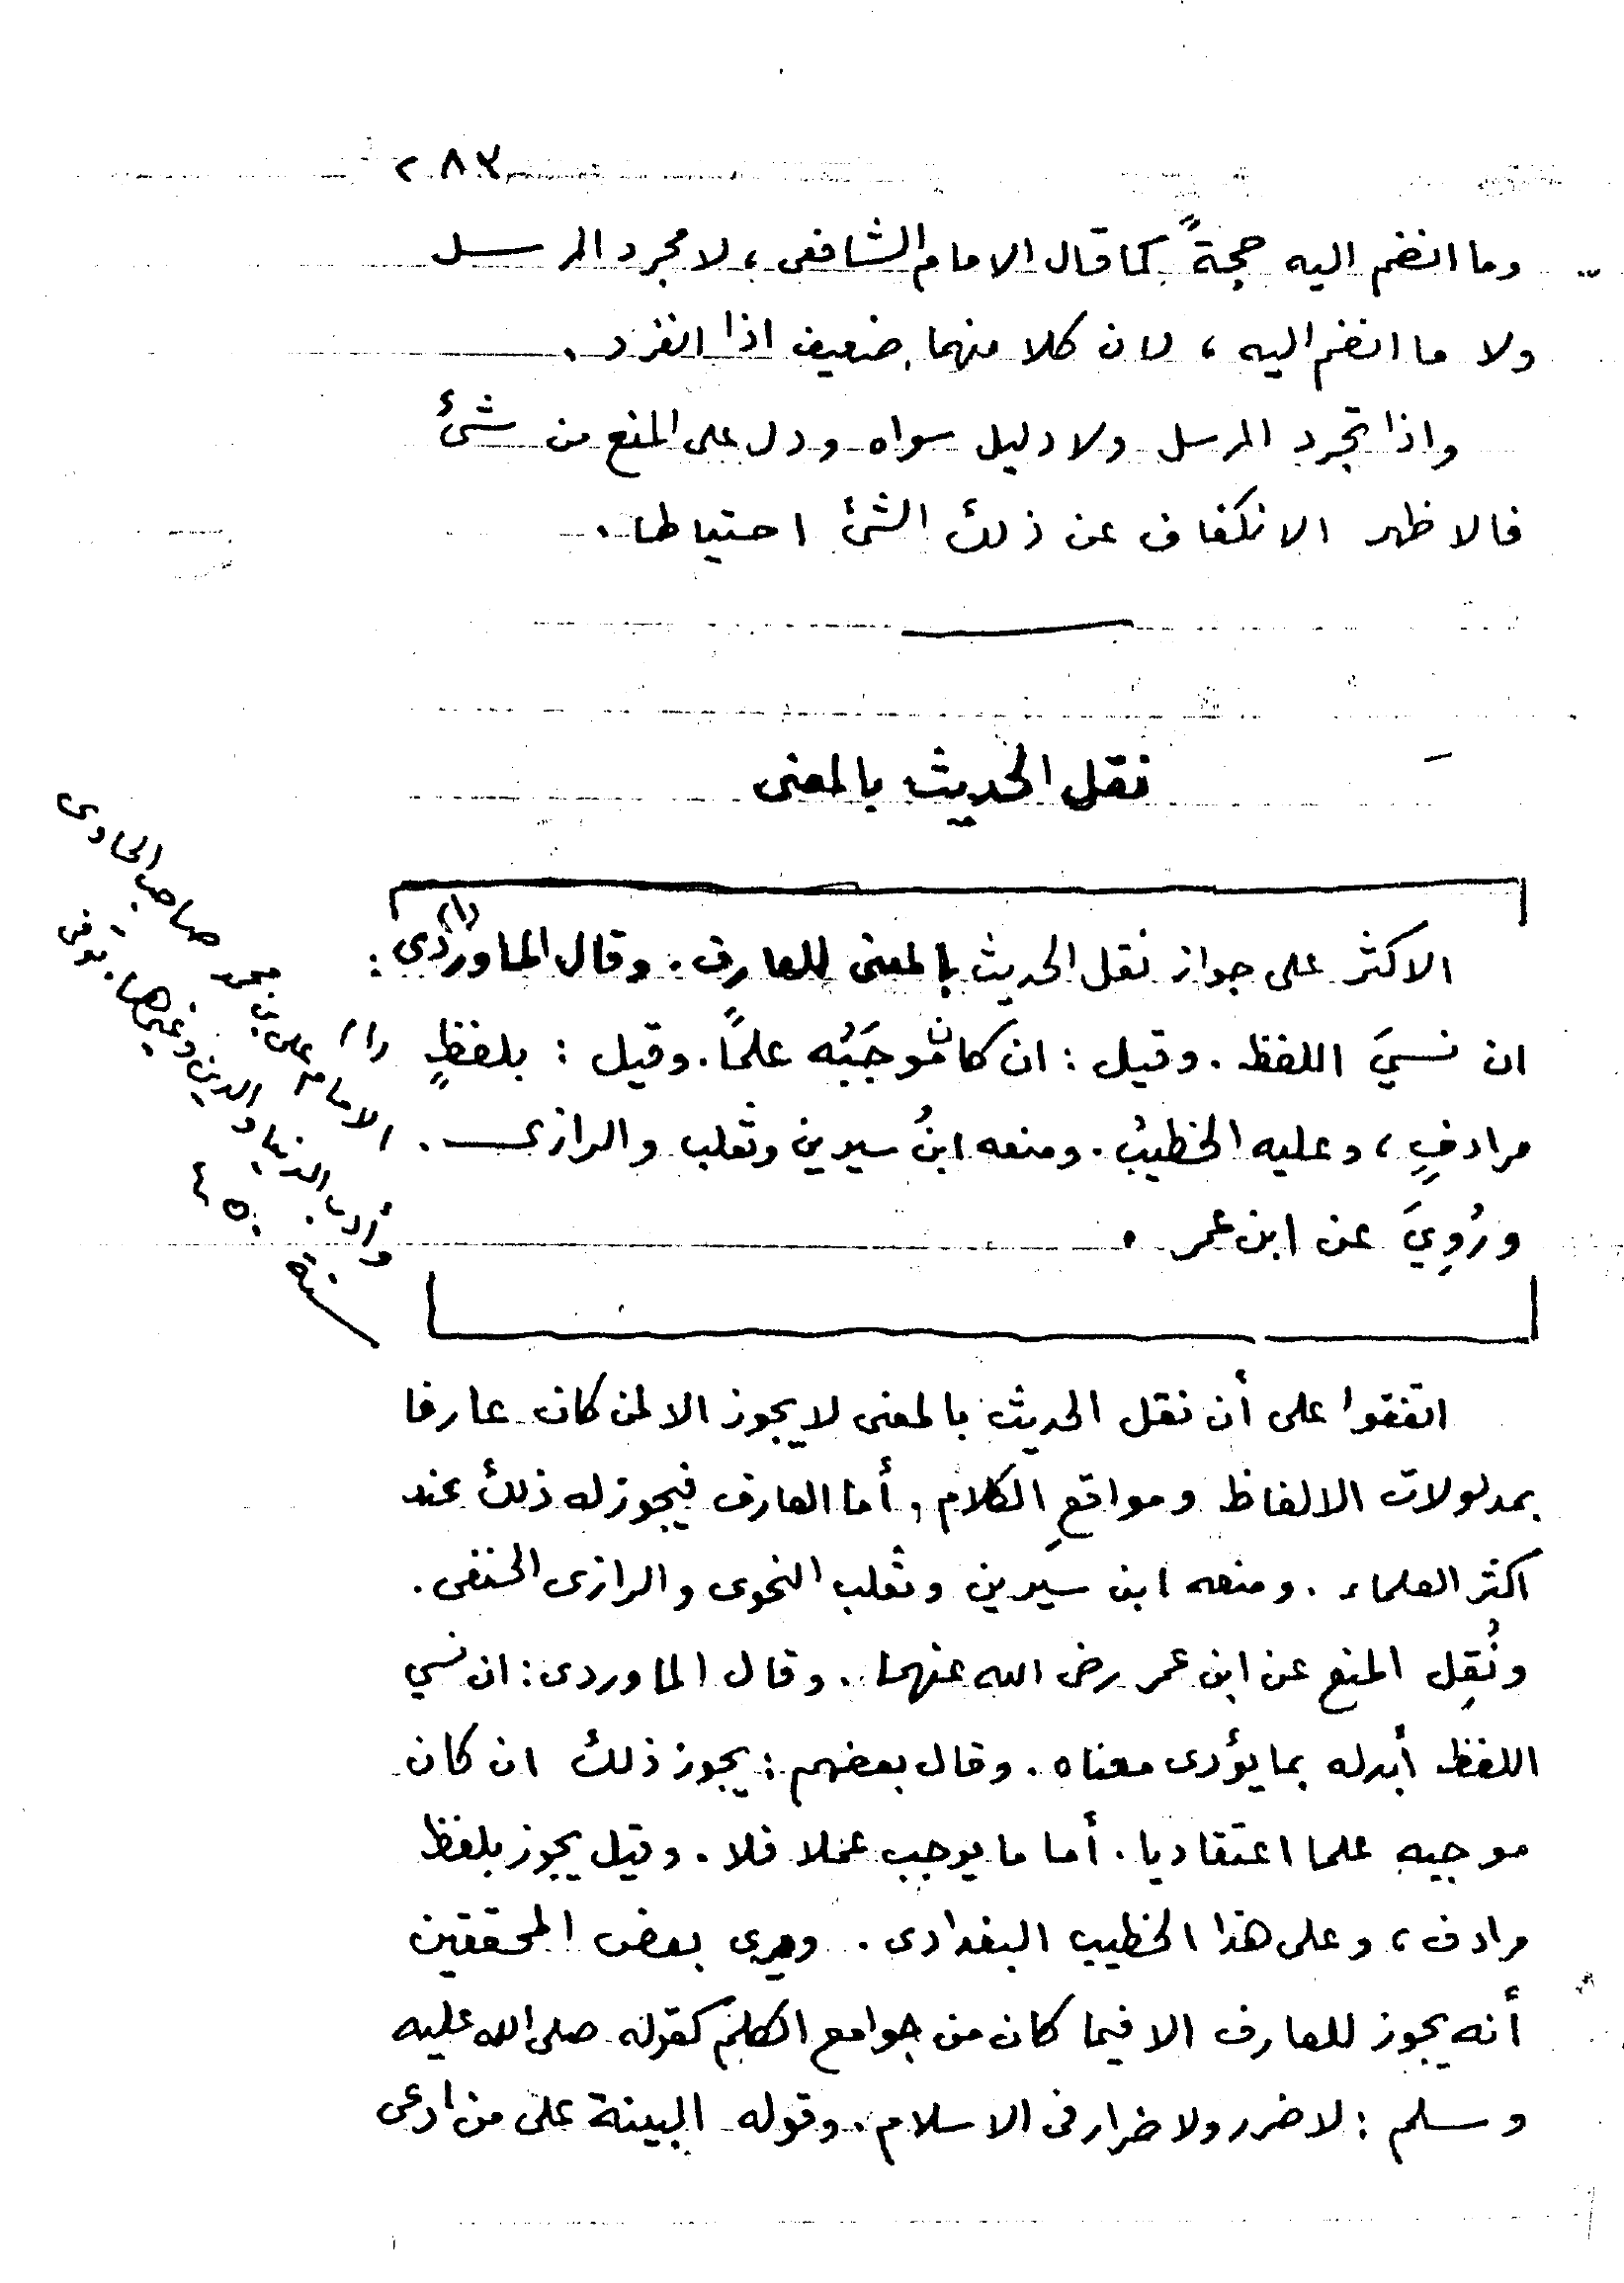 ٢٨٣
وما انضم اليه حجةً كما قال الامام الشافعى ، لا مجرد المرسل
ولا ما انضم اليه ، لان كلا منهما ضعيف اذا انفرد .
واذا تجرد المرسل ولا دليل سواه ودل على المنع من شئ
فالاظهر الانكفاف عن ذلك الشئ احتياطا .
نقل الحديث بالمعنى
الاكثر على جواز نقل الحديث بالمعنى للعارف . وقال الماوردى (١) :
ان نسيَ اللفظ . وقيل : ان كان موجَبُه علمًا . وقيل : بلفظٍ
مرادفٍ ، وعليه الخطيبُ . ومنعه ابنُ سيرين وثعلب والرازى .
ورُوِيَ عن ابن عمر .
(١) الامام على بن محمد صاحب الحاوى
وأدب الدنيا والدين وغيرها . توفى
سنة ٤٥٠
اتفقوا على أن نقل الحديث بالمعنى لا يجوز الا لمن كان عارفا
بمدلولات الالفاظ ومواقعِ الكلام ، أما العارف فيجوز له ذلك عند
اكثر العلماء . ومنعه ابن سيرين وثعلب النحوى والرازى الحنفى .
ونُقِل المنع عن ابن عمر رضى الله عنهما . وقال الماوردى : ان نسي
اللفظ أبدله بما يؤدى معناه . وقال بعضهم : يجوز ذلك ان كان
موجبه علما اعتقاديا . أما ما يوجب عملا فلا . وقيل يجوز بلفظ
مرادف ، وعلى هذا الخطيب البغدادى . ويرى بعض المحققين
أنه يجوز للعارف الا فيما كان من جوامع الكلم كقوله صلى الله عليه
وسلم : لا ضرر ولا ضرار فى الاسلام . وقوله البينة على من ادعى